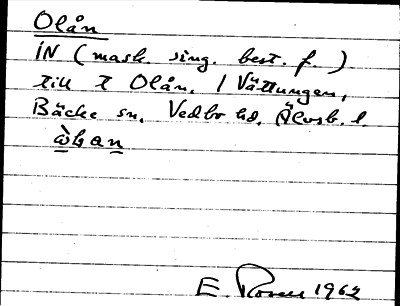 Olån
IN (mask sing. best. f.)
till t Olån, i Vättungen,
Bäcke sn, Vedbo hd, Älvsb. l.
E. Rosell 1962